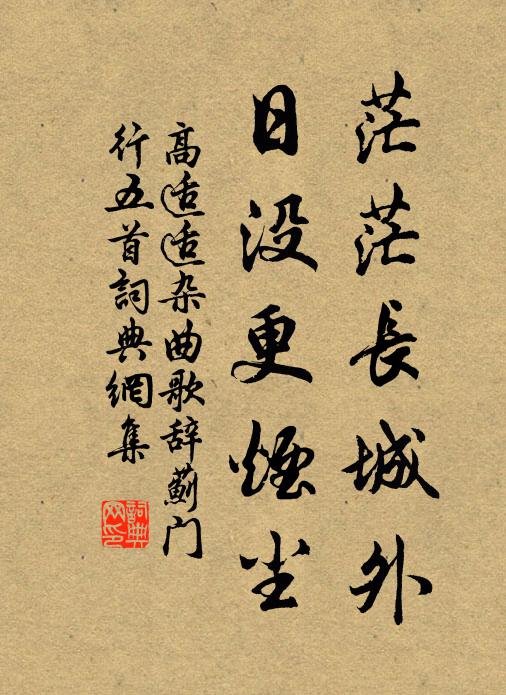 茫茫長城外
日没更煙尘
高适适杂曲歌辞薊门
行五首詞典網集
詞典
网印